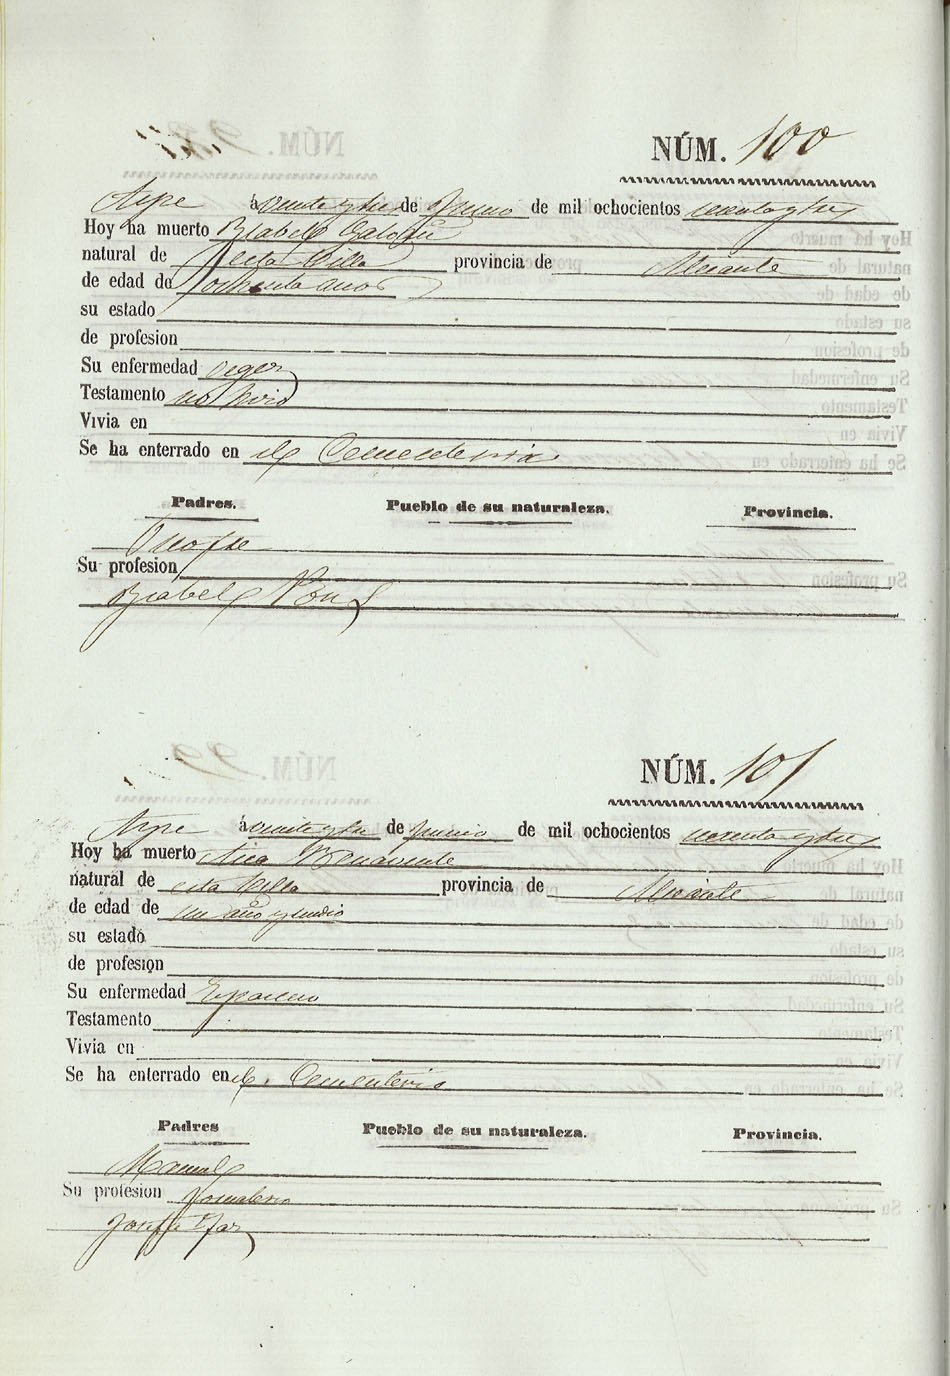 NÚM. 100
Aspe á veinte y tres de Junio de mil ochocientos sesenta y tres
Hoy ha muerto Isabel
natural de esta Villa provincia de Alicante
de edad de ochenta años
su estado
de profesion
Su enfermedad vegez
Testamento no hizo
Vivia en
Se ha enterrado en el Cementerio
Padres. Pueblo de su naturaleza. Provincia.
Onofre
Su profesion
Isabel Pons
NÚM. 101
Aspe á veinte y tres de Junio de mil ochocientos sesenta y tres
Hoy ha muerto Benavente
natural de esta Villa provincia de Alicante
de edad de un año y medio
su estado
de profesion
Su enfermedad
Testamento
Vivia en
Se ha enterrado en el Cementerio
Padres Pueblo de su naturaleza. Provincia.
Manuel
Su profesion Jornalero